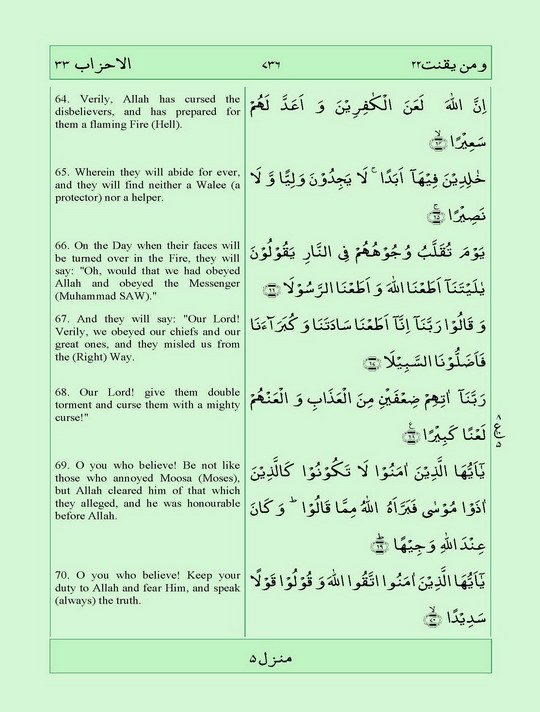 الاحزاب ٣٣
٧٣٦
ومن يقنت٢٢
64. Verily, Allah has cursed the
disbelievers, and has prepared for
them a flaming Fire (Hell).
اِنَّ اللّٰهَ لَعَنَ الْكٰفِرِيْنَ وَ اَعَدَّ لَهُمْ
سَعِيْرًا ۙ﴿٦٤﴾
65. Wherein they will abide for ever,
and they will find neither a Walee (a
protector) nor a helper.
خٰلِدِيْنَ فِيْهَاۤ اَبَدًا ۚ لَا يَجِدُوْنَ وَلِيًّا وَّ لَا
نَصِيْرًا ۚ﴿٦٥﴾
66. On the Day when their faces will
be turned over in the Fire, they will
say: "Oh, would that we had obeyed
Allah and obeyed the Messenger
(Muhammad SAW)."
يَوْمَ تُقَلَّبُ وُجُوْهُهُمْ فِى النَّارِ يَقُوْلُوْنَ
يٰلَيْتَنَاۤ اَطَعْنَا اللّٰهَ وَ اَطَعْنَا الرَّسُوْلَا ﴿٦٦﴾
67. And they will say: "Our Lord!
Verily, we obeyed our chiefs and our
great ones, and they misled us from
the (Right) Way.
وَ قَالُوْا رَبَّنَاۤ اِنَّاۤ اَطَعْنَا سَادَتَنَا وَ كُبَرَآءَنَا
فَاَضَلُّوْنَا السَّبِيْلَا ﴿٦٧﴾
68. Our Lord! give them double
torment and curse them with a mighty
curse!"
رَبَّنَاۤ اٰتِهِمْ ضِعْفَيْنِ مِنَ الْعَذَابِ وَ الْعَنْهُمْ
لَعْنًا كَبِيْرًا ﴿٦٨﴾
69. O you who believe! Be not like
those who annoyed Moosa (Moses),
but Allah cleared him of that which
they alleged, and he was honourable
before Allah.
يٰۤاَيُّهَا الَّذِيْنَ اٰمَنُوْا لَا تَكُوْنُوْا كَالَّذِيْنَ
اٰذَوْا مُوْسٰى فَبَرَّاَهُ اللّٰهُ مِمَّا قَالُوْا ؕ وَ كَانَ
عِنْدَ اللّٰهِ وَجِيْهًا ﴿٦٩﴾
70. O you who believe! Keep your
duty to Allah and fear Him, and speak
(always) the truth.
يٰۤاَيُّهَا الَّذِيْنَ اٰمَنُوا اتَّقُوا اللّٰهَ وَ قُوْلُوْا قَوْلًا
سَدِيْدًا ۙ﴿٧٠﴾
منزل ٥